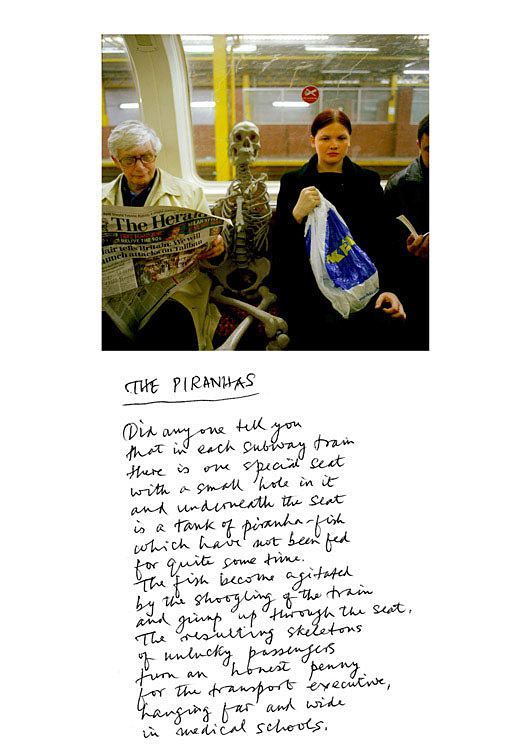 The Herald
RELIVE THE 90s
Blair tells Britain: We will
launch attacks on Taliban
THE PIRANHAS
Did anyone tell you
that in each subway train
there is one special seat
with a small hole in it
and underneath the seat
is a tank of piranha-fish
which have not been fed
for quite some time.
The fish become agitated
by the shoogling of the train
and jump up through the seat.
The resulting skeletons
of unlucky passengers
turn an honest penny
for the transport executive,
hanging far and wide
in medical schools.